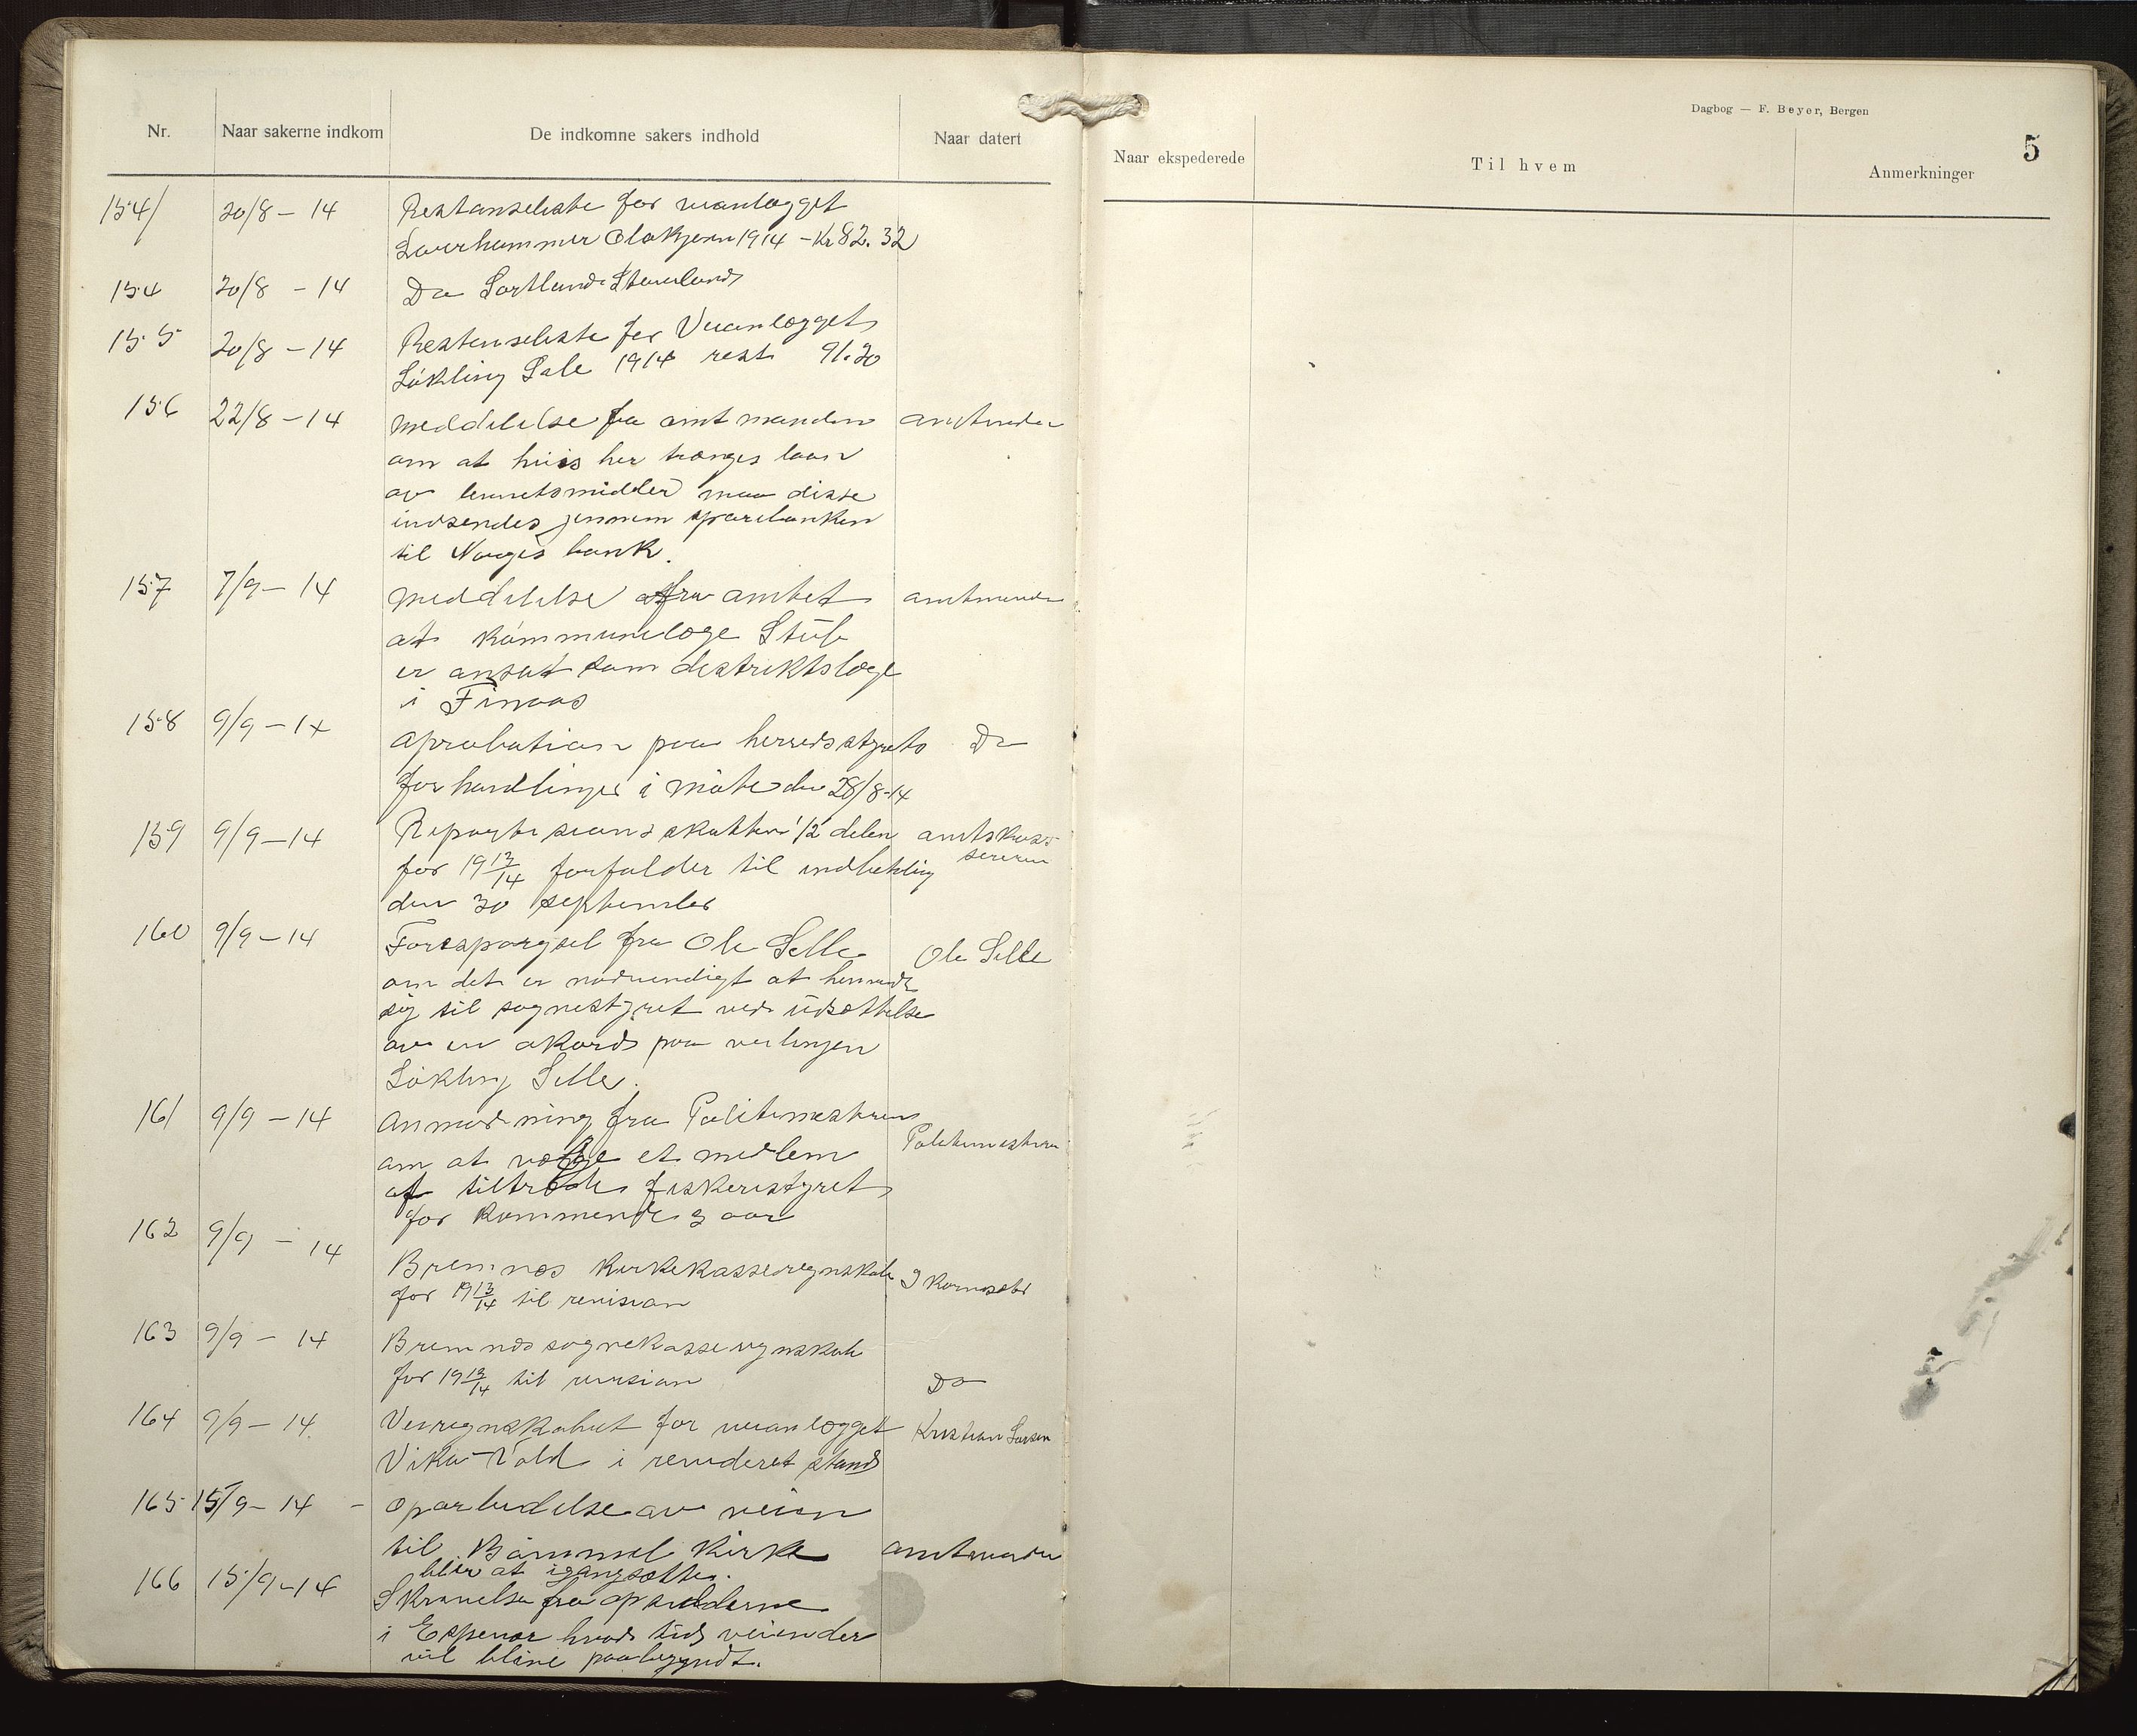 Dagbog — F. Beyer, Bergen
5
Nr. Naar sakerne indkom De indkomne sakers indhold Naar datert
Naar ekspederede Til hvem Anmerkninger
154/ 20/8 - 14 Restanseliste for veianlægget
1914 - Kr 82.32
154 20/8 - 14 Do
155 20/8 - 14 Restanseliste for Veianlægget
Løkling Sele 1914 rest 91.20
156 22/8 - 14 meddelelse fra amtmanden amtmanden
om at hvis her trænges laan
av maa disse
indsendes jennem sparebanken
til Norges bank.
157 7/9 - 14 meddelelse fra amtet amtmanden
at kommunelæge Stub
er ansat som destriktslæge
i Finaas
158 9/9 - 14 aprobation paa herredsstyrets Do
forhandlinger i møte den 28/8-14
159 9/9 - 14 Repartisionsskatten 1/2 delen amtskass
for 1913/14 forfalder til indbetaling sereren
den 30 september
160 9/9 - 14 Forespørgsel fra Ole Selle Ole Selle
om det er nødvendigt at henvende
sig til sognestyret ved udsættelse
av en akord paa veilinjen
Løkling Selle.
161 9/9 - 14 anmodning fra Politimesteren Politimesteren
om at vælge et medlem
af tiltræde fiskeristyret
for kommende 3 aar
162 9/9 - 14 Bremnes kirkekasseregnskab
for 1913/14 til revision
163 9/9 - 14 Bremnes sognekasseregnskab
for 1913/14 til revision Do
164 9/9 - 14. Veiregnskabet for veianlægget Kristian Larsen
Vika - Vold i revideret stand
165 15/9 - 14 - oparbeidelse av veien
til Bømmel Kirke amtmanden
blir at igangsætte.
166 15/9 - 14 Skrivelse fra opsidderne
i Espevær hvad tid veien der
vil blive paabegyndt.